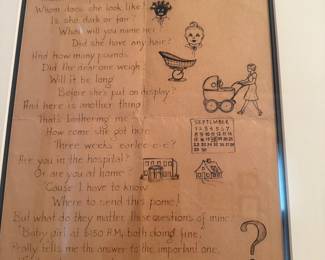 Whom does she look like?
Is she dark or fair?
What will you name her?
Did she have any hair?
And how many pounds
Did the dear one weigh
Will it be long
Before she's put on display?
And here is another thing
That's bothering me
How come she got here
Three weeks earlee-e-e?
SEPTEMBER
Are you in the hospital?
Or are you at home
'Cause I have to know
Where to send this pome!
But what do they matter, these questions of mine:
Baby girl at 6:50 P.M., both doing fine,
Really tells me the answer to the important one,